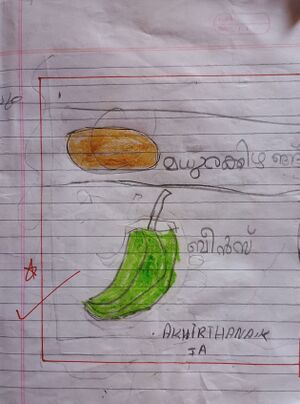 മധുരക്കിഴങ്ങ്
ബീൻസ്
AKHIRTHANA.K
IA